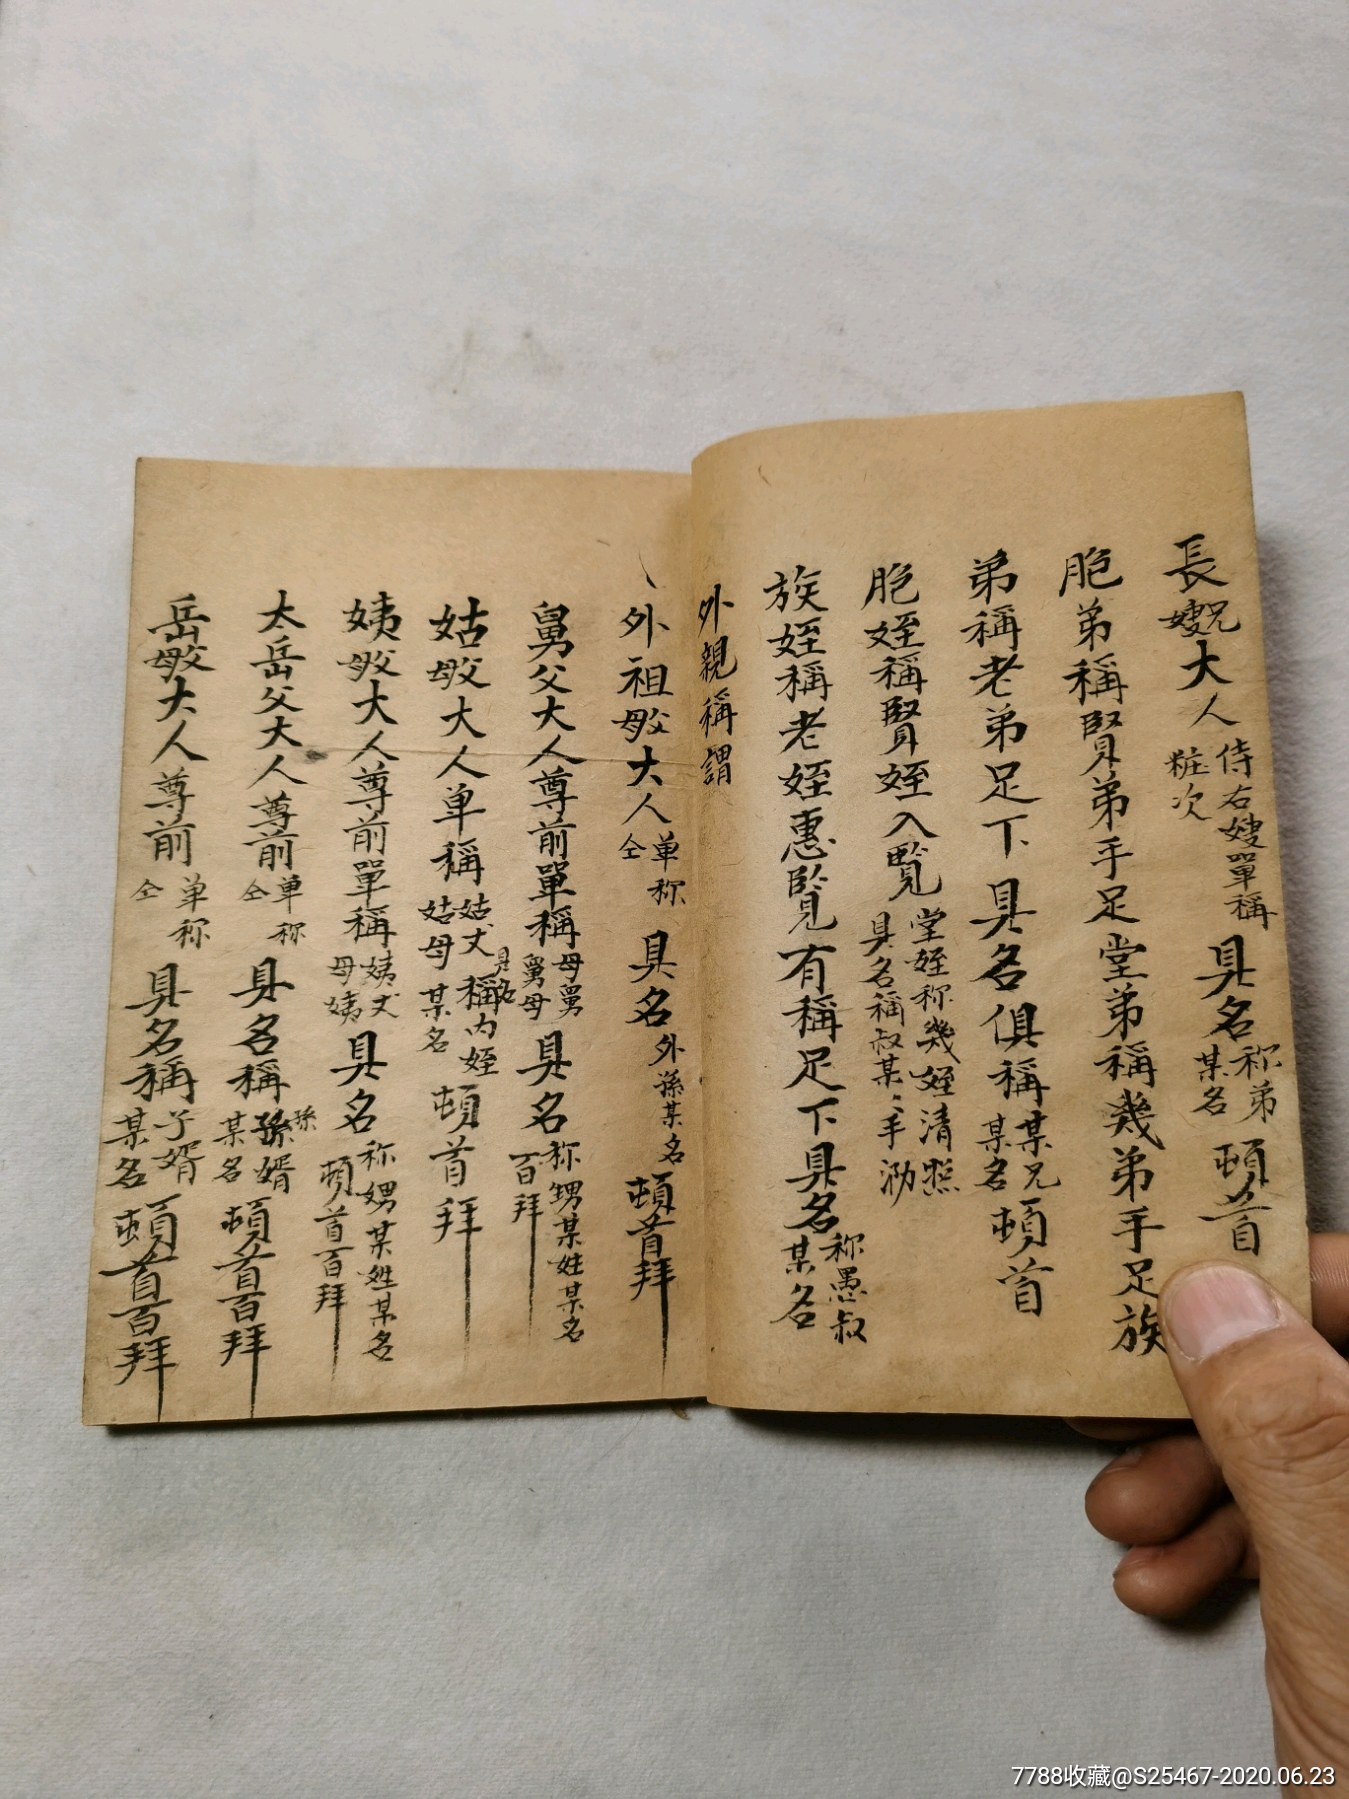 長兄嫂大人侍右嫂單稱粧次具名称弟某名頓首
胞弟稱賢弟手足堂弟稱幾弟手足族
弟稱老弟足下具名俱稱某兄某名頓首
胞姪稱賢姪入覽堂姪称幾姪清照具名稱叔某〻手泐
族姪稱老姪惠覽有稱足下具名称愚叔某名
外親稱謂
外祖父母大人单称仝具名外孫某名頓首拜
舅父大人尊前單稱母舅舅母具名称甥某姓某名百拜
姑父母大人单稱姑丈姑母具名稱内姪某名頓首拜
姨父母大人尊前單稱姨丈母姨具名称甥某姓某名頓首百拜
太岳父大人尊前单称仝具名稱孫婿某名頓首百拜
岳父母大人尊前单称仝具名稱子婿某名頓首百拜
7788收藏@S25467-2020.06.23